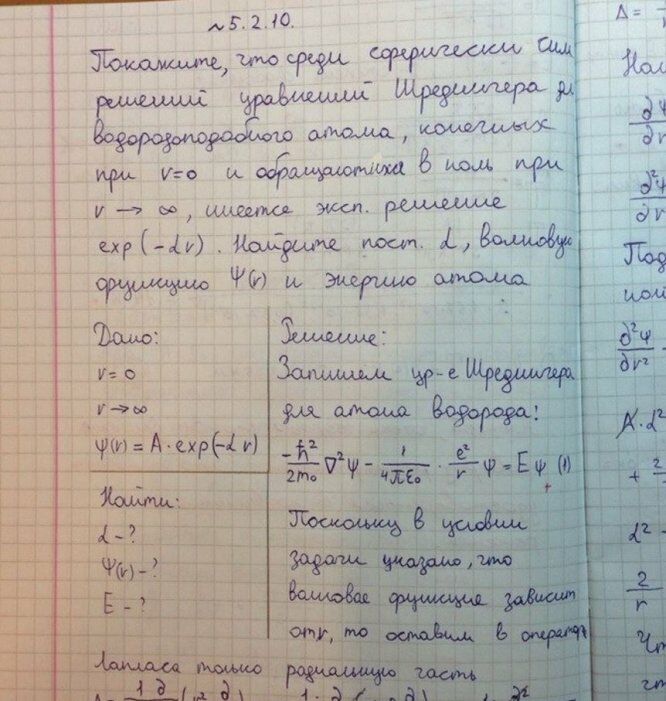 ~ 5.2.10.
Покажите, что среди сферически сим
решений уравнений Шредингера дл
водородоподобного атома, конечных
при r=0 и обращающихся в ноль при
r → ∞, имеется эксп. решение
exp(-αr). Найдите пост. α, волновую
функцию Ψ(r) и энергию атома
Дано:
r = 0
r → ∞
ψ(r) = A · exp(-αr)
Найти:
α - ?
Ψ(r) - ?
E - ?
Решение:
Запишем ур-е Шредингера
для атома водорода:
-ħ²/2m₀ ∇²ψ - 1/4πε₀ · e²/r ψ = Eψ (1)
Поскольку в условии
задачи указано, что
волновая функция зависит
от r, то оставим в операторе
Лапласа только радиальную часть
Δ =
Най
∂ψ/∂r
∂²ψ/∂r²
Под
∂²ψ/∂r²
A·α²
+ 2
α² -
2/r
Чт